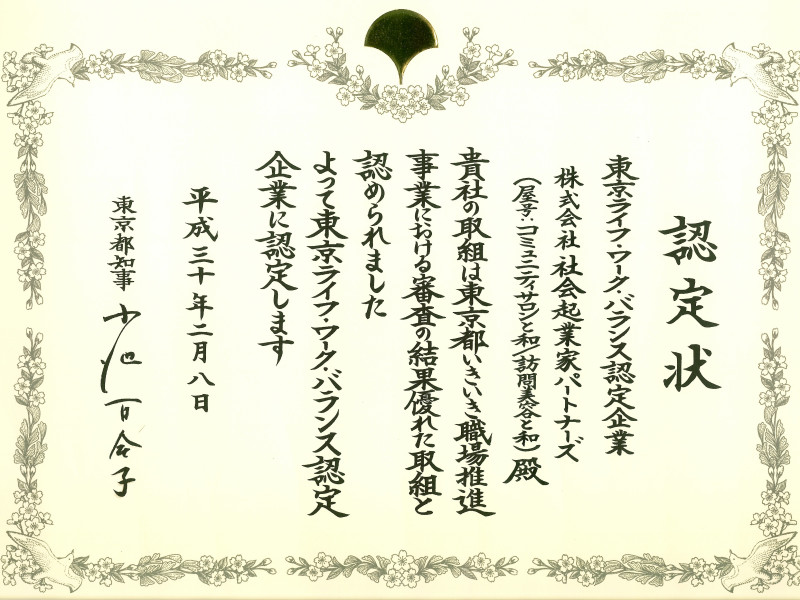 認定状
東京ライフ・ワーク・バランス認定企業
株式会社 社会起業家パートナーズ
（屋号：コミュニティサロンと和/訪問美容と和）殿
貴社の取組は東京都いきいき職場推進
事業における審査の結果優れた取組と
認められました
よって東京ライフ・ワーク・バランス認定
企業に認定します
平成三十年二月八日
東京都知事 小池百合子